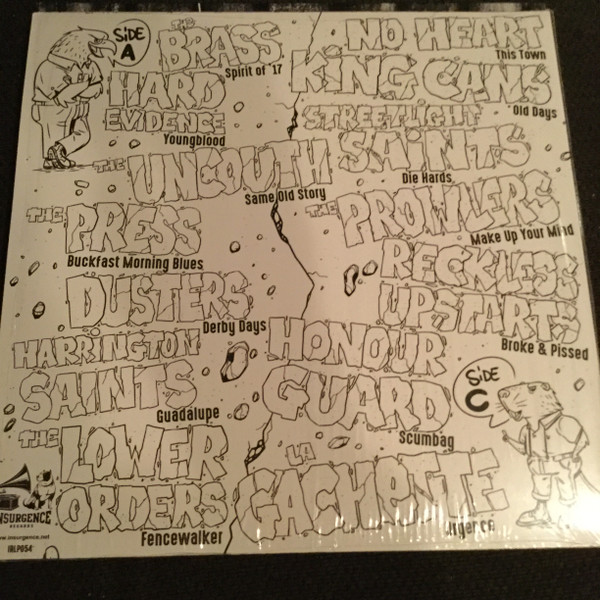 SiDE
A
THE
BRASS
Spirit of '17
HARD
EVIDENCE
Youngblood
THE UNCOUTH
Same Old Story
THE PRESS
Buckfast Morning Blues
DUSTERS
Derby Days
HARRINGTON
SAINTS
Guadalupe
THE LOWER
ORDERS
Fencewalker
NO HEART
This Town
KING CANS
Old Days
STREETLIGHT
SAINTS
Die Hards
THE PROWLERS
Make Up Your Mind
RECKLESS
UPSTARTS
Broke & Pissed
HONOUR
GUARD
Scumbag
SiDE
C
LA
GACHETTE
INSURGENCE
RECORDS
www.insurgence.net
IRLP054